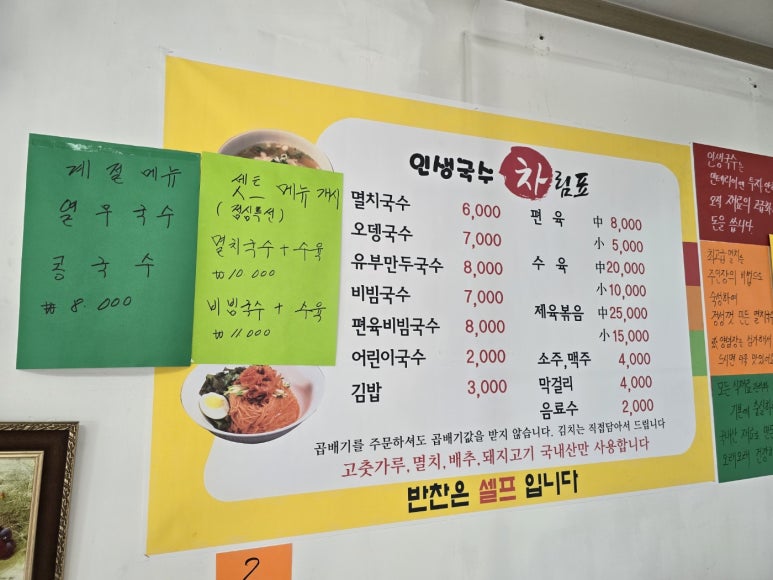 계절메뉴
열무국수
콩국수
₩8.000
셋트 메뉴 개시
(점심특선)
멸치국수+수육
₩10 000
비빔국수+수육
₩11 000
인생국수 차림표
멸치국수 6,000
오뎅국수 7,000
유부만두국수 8,000
비빔국수 7,000
편육비빔국수 8,000
어린이국수 2,000
김밥 3,000
편 육 中 8,000
小 5,000
수 육 中 20,000
小 10,000
제육볶음 中 25,000
小 15,000
소주,맥주 4,000
막걸리 4,000
음료수 2,000
곱배기를 주문하셔도 곱배기값을 받지 않습니다. 김치는 직접담아서 드립니다
고춧가루, 멸치, 배추, 돼지고기 국내산만 사용합니다
반찬은 셀프 입니다
2
인생국수는
인테리어에 투자
오직 재료의
돈을 씁니다.
최고급 멸치
주인장의 비법으로
숙성하여
정성껏 만든